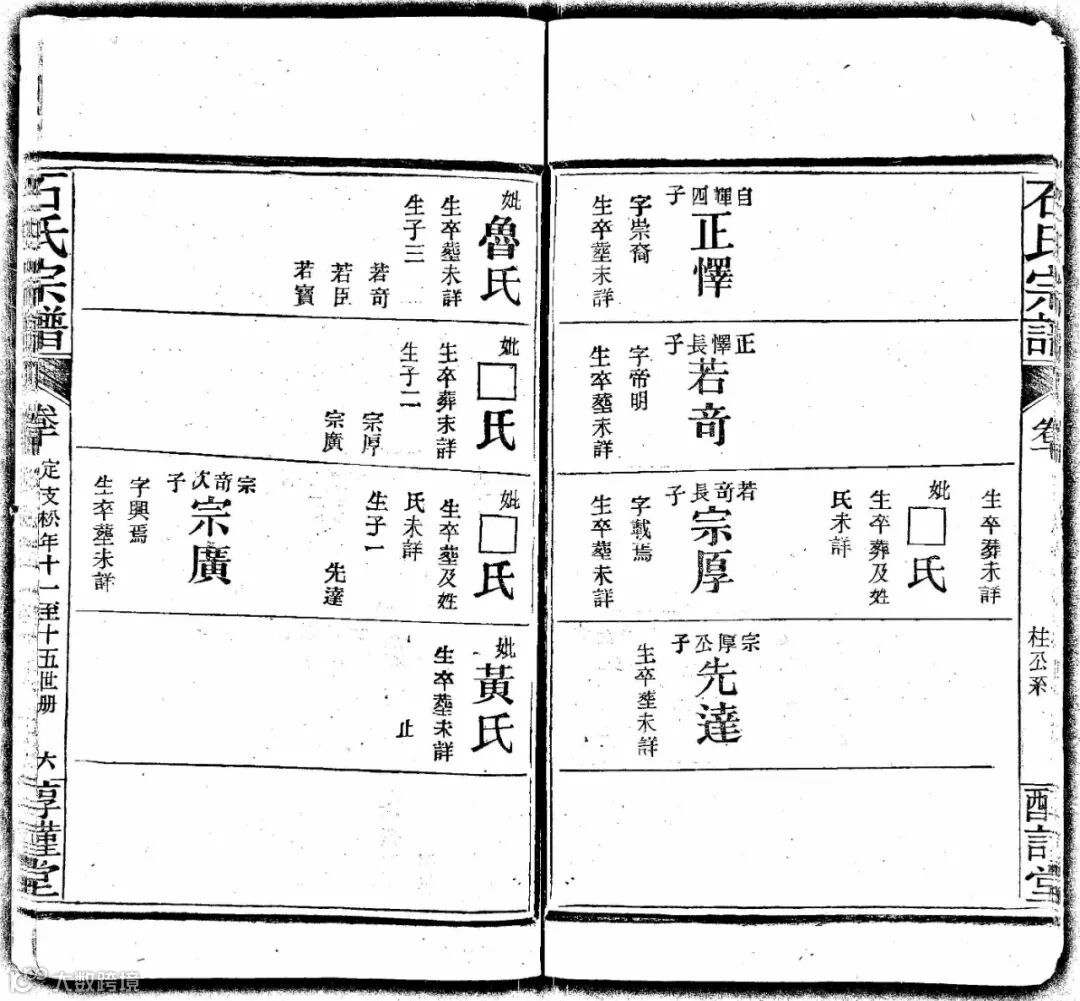 石氏宗譜
卷十
柱公系
自輝四子
正懌
字崇裔
生卒塟未詳
正懌長子
若竒
字帝明
生卒塟未詳
生卒葬未詳
妣
□氏
生卒葬及姓
氏未詳
若竒長子
宗厚
字載焉
生卒塟未詳
宗厚公子
先達
生卒塟未詳
妣
魯氏
生卒塟未詳
生子三
若竒
若臣
若寶
妣
□氏
生卒葬未詳
生子二
宗厚
宗廣
妣
□氏
生卒塟及姓
氏未詳
生子一
先達
宗竒次子
宗廣
字興焉
生卒塟未詳
妣
黃氏
生卒塟未詳
止
石氏宗譜
卷十
定支松年十一至十五世册
六
大数跨境